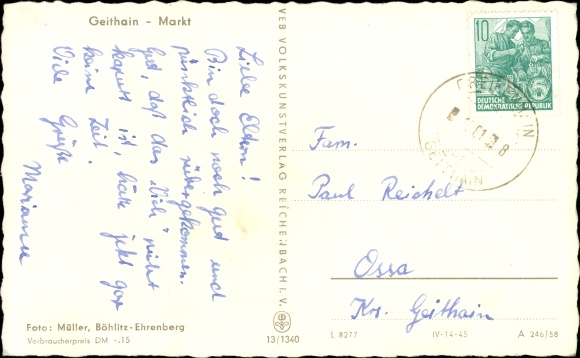 Geithain - Markt
Liebe Eltern!
Bin doch noch gut und
pünktlich rübergekommen.
Gut, daß das Vich nicht
kaputt ist, hätte jetzt gar
keine Zeit!
Viele Grüße
Marianne
Foto: Müller, Böhlitz-Ehrenberg
Verbraucherpreis DM -.15
VEB VOLKSKUNSTVERLAG REICHENBACH i. V.
13/1340
10
DEUTSCHE
DEMOKRATISCHE REPUBLIK
GEITHAIN
GEITHAIN
Fam.
Paul Reichelt
Ossa
Krs. Geithain
L 8277
IV-14-45
A 246/58